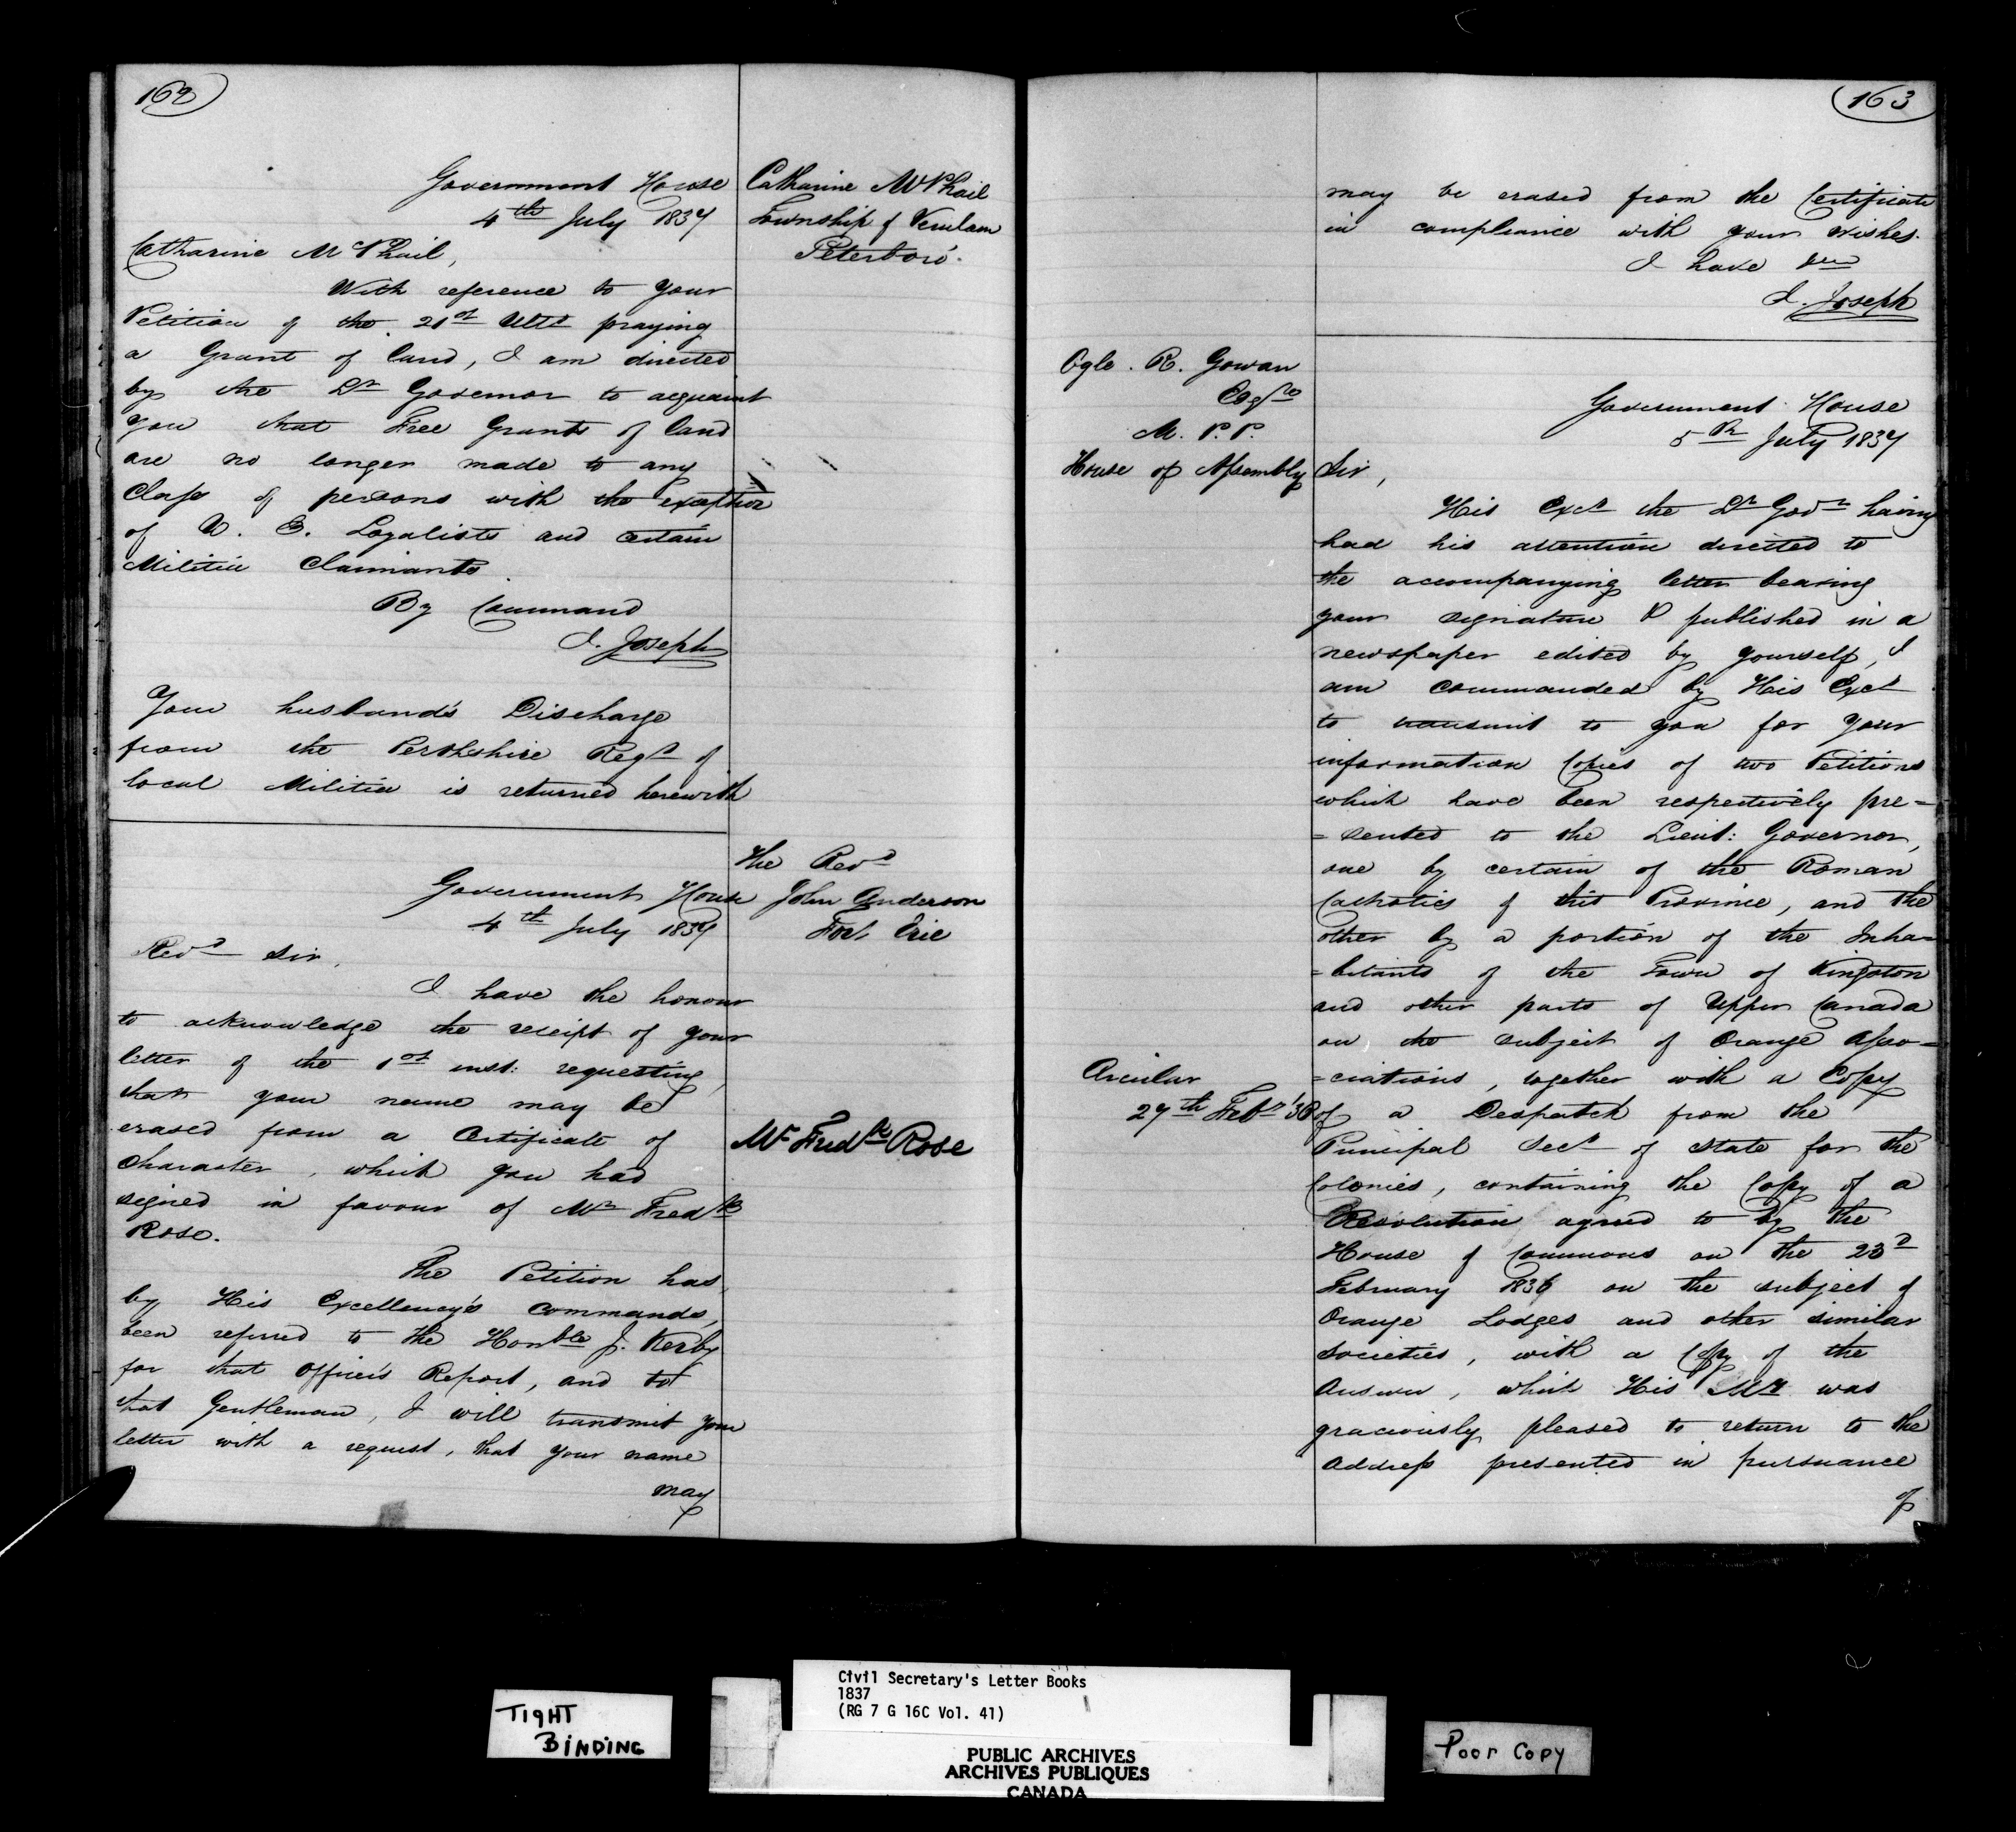 162
Government House
4th July 1837
Catharine McPhail
Township of Verulam
Peterboro'.
Catharine McPhail,
With reference to your
Petition of the 21st Ulto praying
a Grant of land, I am directed
by the Lt Governor to acquaint
you that Free Grants of land
are no longer made to any
Class of persons with the exception
of U. E. Loyalists and certain
Militia Claimants.
By Command
J. Joseph
Your husband's Discharge
from the Perthshire Regt of
local Militia is returned herewith
The Revd
John Anderson
Fort Erie
Government House
4th July 1837
Revd Sir,
I have the honour
to acknowledge the receipt of your
letter of the 1st inst: requesting,
that your name may be
erased from a Certificate of
Character, which you had
signed in favour of Mr Fredk
Rose.
Mr Fredk Rose
The Petition has,
by His Excellency's commands,
been referred to the Honble J. Kerby
for that Officer's Report, and to
that Gentleman, I will transmit your
letter with a request, that your name
may
163
may be erased from the Certificate
in compliance with your wishes.
I have &c
J. Joseph
Ogle. R. Gowan
Esqre
M. P. P.
House of Assembly
Government House
5th July 1837
Sir,
His Excy the Lt Govr having
had his attention directed to
the accompanying letter bearing
your signature & published in a
newspaper edited by yourself, I
am commanded by His Excy
to transmit to you for your
information Copies of two Petitions
which have been respectively pre=
=sented to the Lieut: Governor,
one by certain of the Roman
Catholics of this Province, and the
other by a portion of the Inha=
=bitants of the Town of Kingston
and other parts of Upper Canada
on the subject of Orange Asso=
=ciations, together with a Copy
of a Despatch from the
Circular
27th Feby '36
Principal Secy of State for the
Colonies, containing the Copy of a
Resolution agreed to by the
House of Commons on the 23d
February 1836 on the subject of
Orange Lodges and other similar
Societies, with a Copy of the
Answer, which His My was
graciously pleased to return to the
Address presented in pursuance
of
TIGHT
BINDING
Civil Secretary's Letter Books
1837
(RG 7 G 16C Vol. 41)
PUBLIC ARCHIVES
ARCHIVES PUBLIQUES
CANADA
Poor Copy